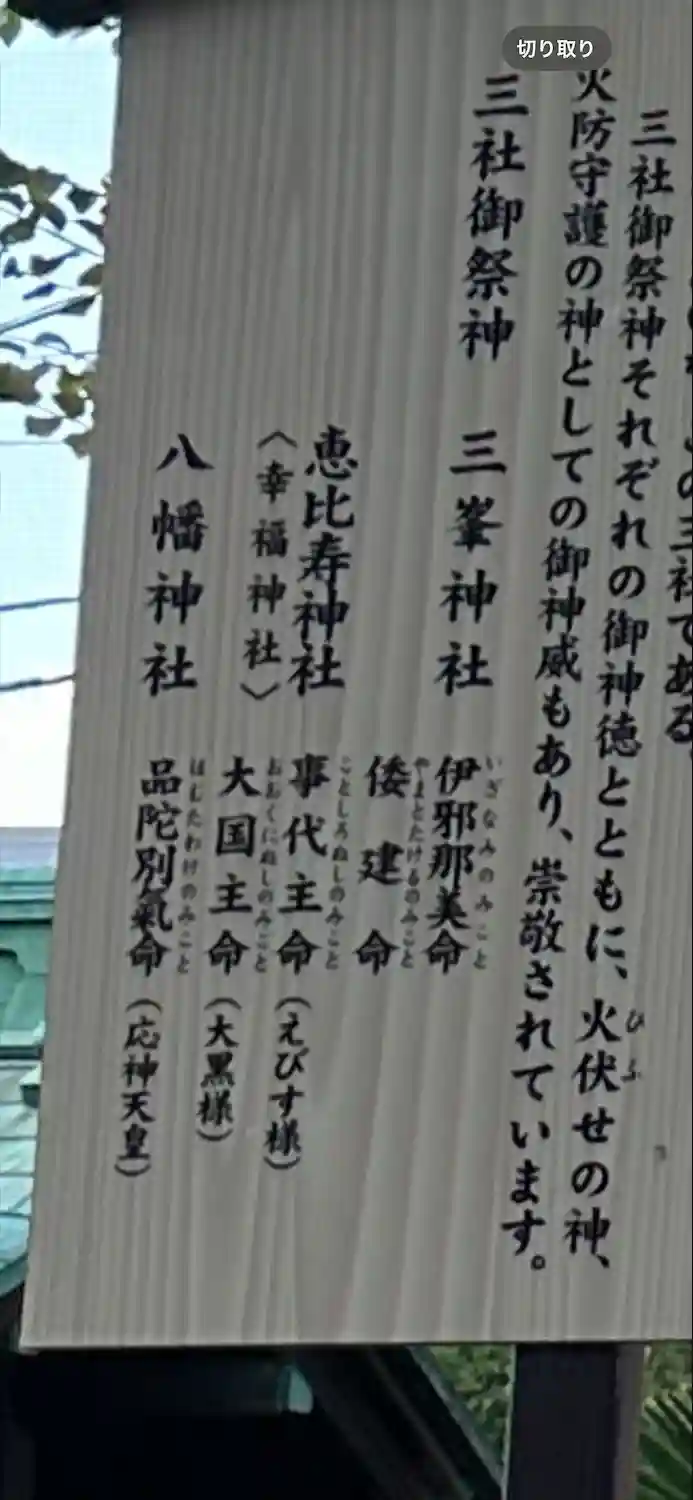 切り取り
の三社である
三社御祭神それぞれの御神徳とともに、火伏せの神、
ひふ
火防守護の神としての御神威もあり、崇敬されています。
三社御祭神 三峯神社 伊邪那美命
いざなみのみこと
倭建命
やまとたけるのみこと
恵比寿神社 事代主命（えびす様）
ことしろぬしのみこと
〈幸福神社〉 大国主命（大黒様）
おおくにぬしのみこと
八幡神社 品陀別氣命（応神天皇）
ほむたわけのみこと